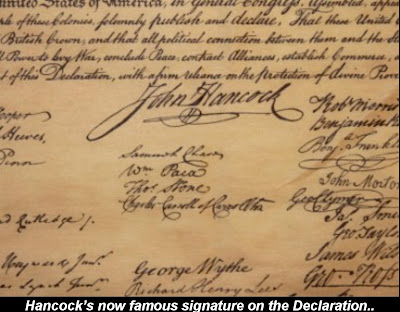 United States of America, in General Congress, Assembled,
of these Colonies, solemnly publish and declare, That these United
British Crown, and that all political connection between them and the
Power to levy War, conclude Peace, contract Alliances, establish Commerce,
of this Declaration, with a firm reliance on the protection of divine
John Hancock
Robt Morris
Hooper
Benjamin
Hewes,
Benja Franklin
Penn
Samuel Chase
Wm Paca
John Morton
Thos Stone
Geo Clymer
Charles Carroll of Carrollton
Jas Smith
Rutledge
Geo Taylor
James
Heyward Junr
George Wythe
Geo Ross
Lynch Junr
Richard Henry Lee
Hancock's now famous signature on the Declaration..